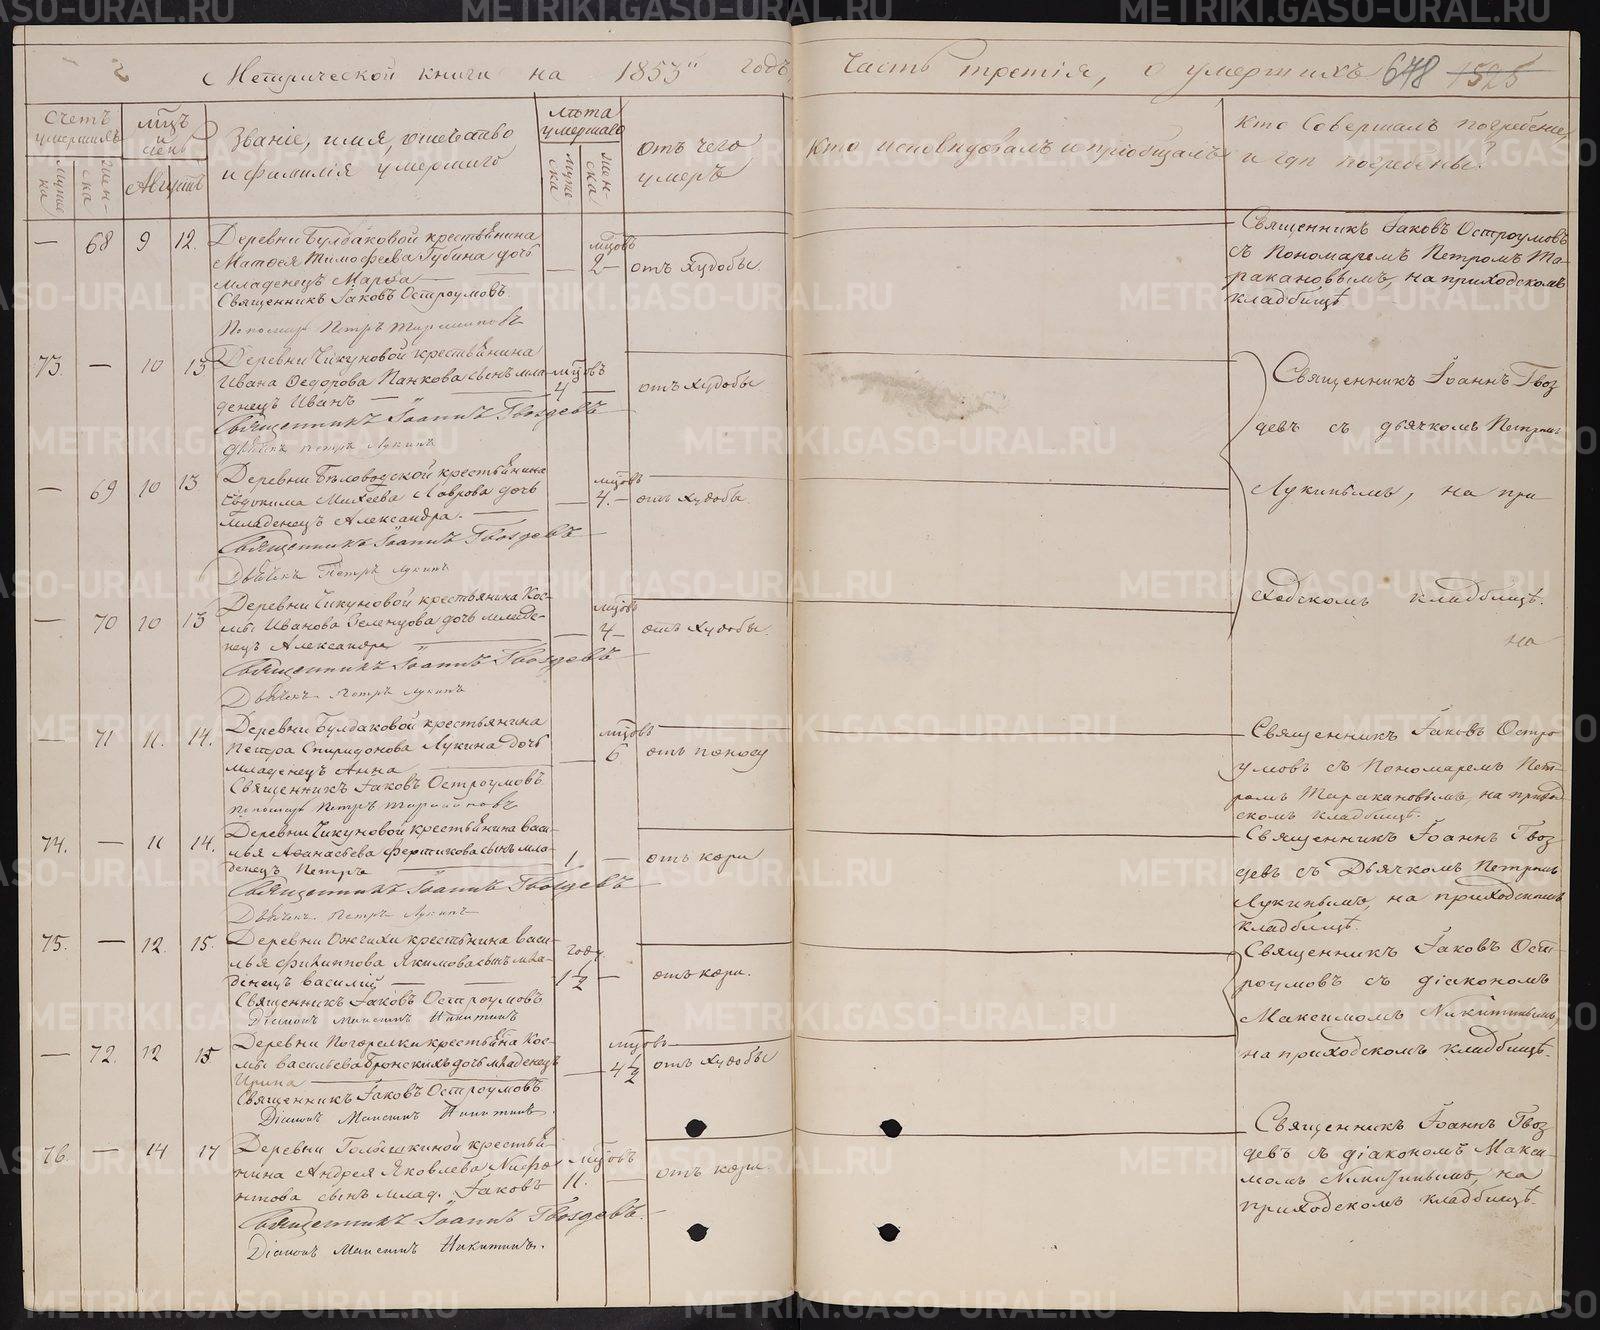 Метрической книги на 1853 годъ,
Часть третія, о умершихъ 678 1525
Счетъ умершихъ
Мужеска
Женска
Мцъ и день
Августъ
Званіе, имя, отчество
и фамилія умершаго
Лѣта умершаго
Мужеска
Женска
отъ чего умеръ
Кто исповѣдовалъ и пріобщалъ
Кто Совершалъ погребеніе
и гдѣ погребены?
— 68 9 12.
Деревни Булдаковой крестьянина
Матвея Тимофеева Губина дочь
младенецъ Марѳа
Священникъ Іаковъ Остроумовъ.
Пономарь Петръ Таракановъ
мцовъ
2
отъ худобы.
Священникъ Іаковъ Остроумовъ
съ Пономаремъ Петромъ Та-
ракановымъ, на приходскомъ
кладбищѣ
73. — 10 13
Деревни Чикуновой крестьянина
Ивана Ѳедорова Панкова сынъ мла-
денецъ Иванъ
Священникъ Іоаннъ Гвоздевъ
Дьячекъ Петръ Лукинъ
мцовъ
4
отъ худобы
Священникъ Іоаннъ Гвоз
девъ съ дьячкомъ Петромъ
Лукинымъ, на при
ходскомъ кладбищѣ.
на
— 69 10 13
Деревни Бѣловодской крестьянина
Евдокима Михеева Лаврова дочь
младенецъ Александра.
Священникъ Іоаннъ Гвоздевъ
Дьячекъ Петръ Лукинъ
мцовъ
4.
отъ худобы.
— 70 10 13
Деревни Чикуновой крестьянина Кос-
мы Иванова Зеленцова дочь младе-
нецъ Александра
Священникъ Іоаннъ Гвоздевъ
Дьячекъ Петръ Лукинъ
мцовъ
4
отъ худобы.
— 71 11. 14.
Деревни Булдаковой крестьянина
Петра Спиридонова Лукина дочь
младенецъ Анна
Священникъ Іаковъ Остроумовъ
Пономарь Петръ Таракановъ
мцовъ
6
отъ поносу
Священникъ Іаковъ Остро
умовъ съ Пономаремъ Пет-
ромъ Таракановымъ, на приход-
скомъ кладбищѣ.
74. — 11 14.
Деревни Чикуновой крестьянина Васи-
лья Аѳанасьева Фертикова сынъ мла-
денецъ Петръ
Священникъ Іоаннъ Гвоздевъ
Дьячекъ Петръ Лукинъ
1.
отъ кори
Священникъ Іоаннъ Гвоз
девъ съ Дьячкомъ Петромъ
Лукинымъ, на приходскомъ
кладбищѣ.
75. — 12. 15.
Деревни Ожгихи крестьянина Васи-
лья Филиппова Якимова сынъ мла-
денецъ Василій
Священникъ Іаковъ Остроумовъ
Діаконъ Максимъ Никитинъ
году.
1 1/2
отъ кори.
Священникъ Іаковъ Ост-
роумовъ съ діакономъ
Максимомъ Никитинымъ,
на приходскомъ кладбищѣ.
— 72. 12 15
Деревни Погорелки крестьянина Кос-
мы Васильева Бронскихъ дочь младенецъ
Ирина
Священникъ Іаковъ Остроумовъ
Діаконъ Максимъ Никитинъ.
мцовъ
4 1/2
отъ худобы
76. — 14 17
Деревни Голышкиной крестья-
нина Андрея Яковлева Нифо-
нтова сынъ млад. Іаковъ
Священникъ Іоаннъ Гвоздевъ.
Діаконъ Максимъ Никитинъ.
мцовъ
11.
отъ кори.
Священникъ Іоаннъ Гвоз
девъ съ діакономъ Макси-
момъ Никитинымъ, на
приходскомъ кладбищѣ.
METRIKI.GASO-URAL.RU